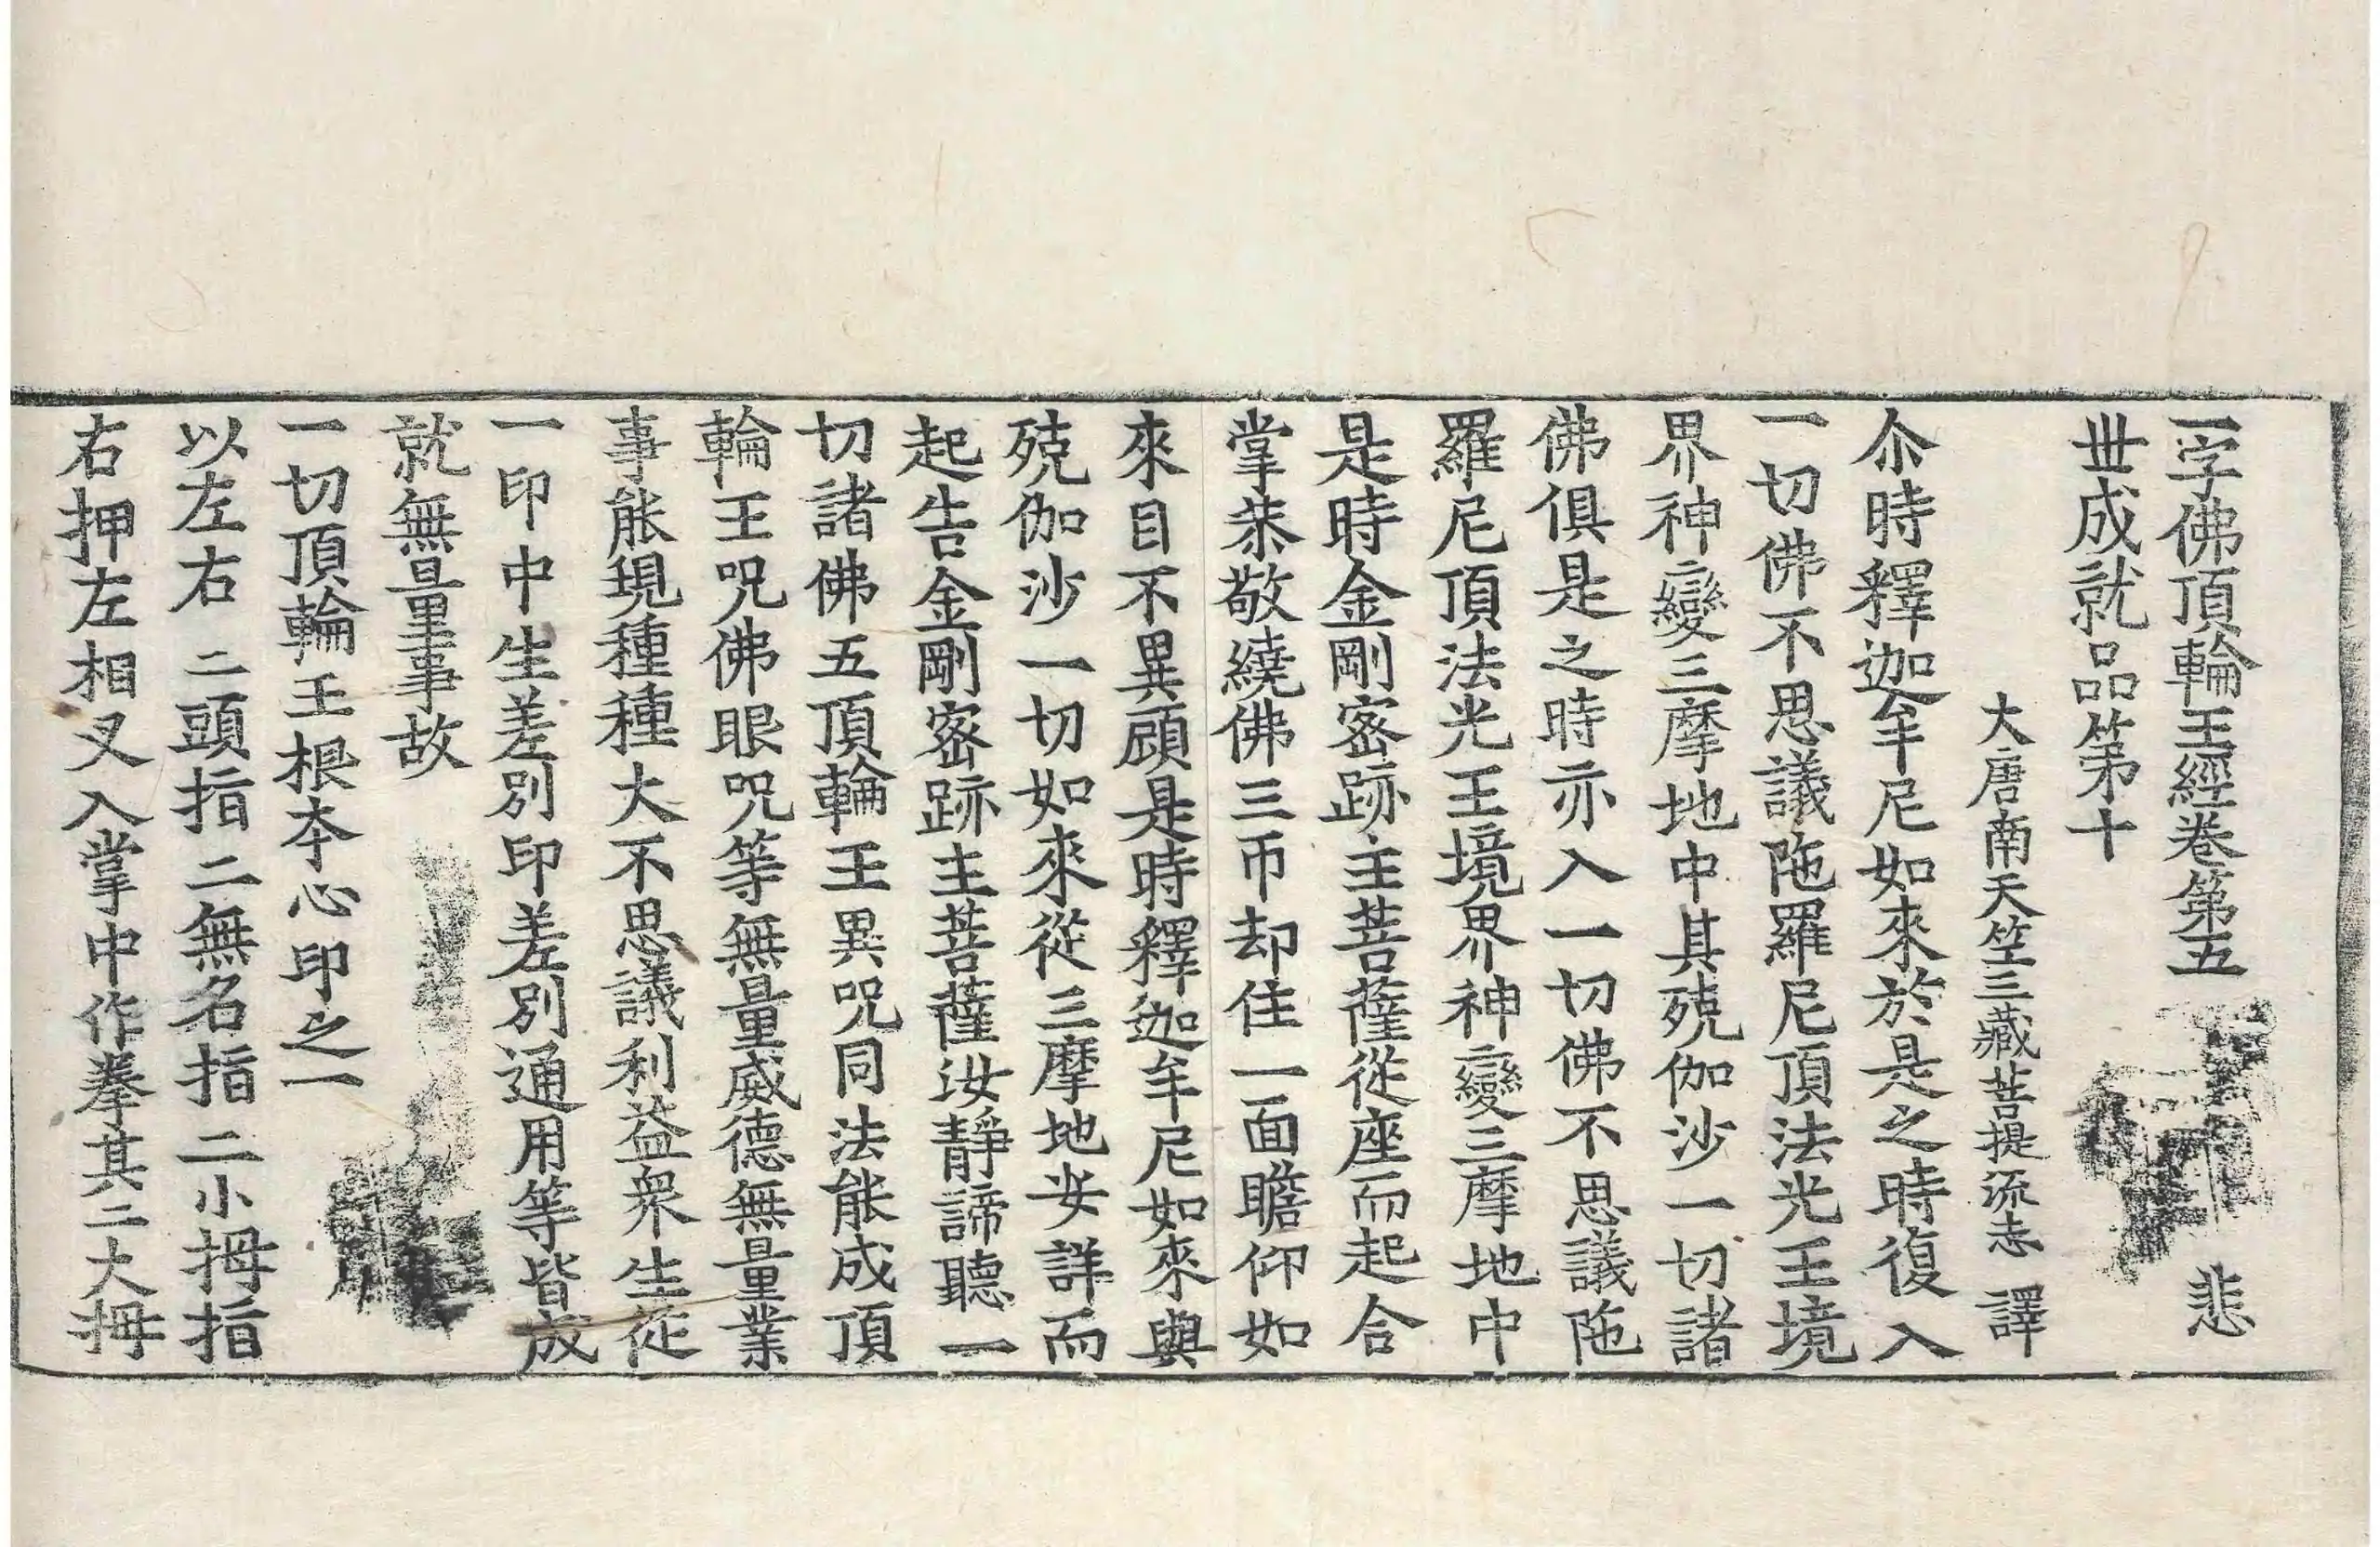 一字佛頂輪王經卷第五 悲
世成就品第十
大唐南天竺三藏菩提流志 譯
尒時釋迦牟尼如來於是之時復入
一切佛不思議陁羅尼頂法光王境
界神變三摩地中其殑伽沙一切諸
佛俱是之時亦入一切佛不思議陁
羅尼頂法光王境界神變三摩地中
是時金剛宻跡主菩薩從座而起合
掌恭敬繞佛三帀却住一面瞻仰如
來目不異顧是時釋迦牟尼如來與
殑伽沙一切如來從三摩地安詳而
起告金剛宻跡主菩薩汝靜諦聽一
切諸佛五頂輪王異呪同法能成頂
輪王呪佛眼呪等無量威德無量業
事能現種種大不思議利益衆生從
一印中生差別印差別通用等皆成
就無量事故
一切頂輪王根本心印之一
以左右二頭指二無名指二小拇指
右押左相叉入掌中作拳其二大拇